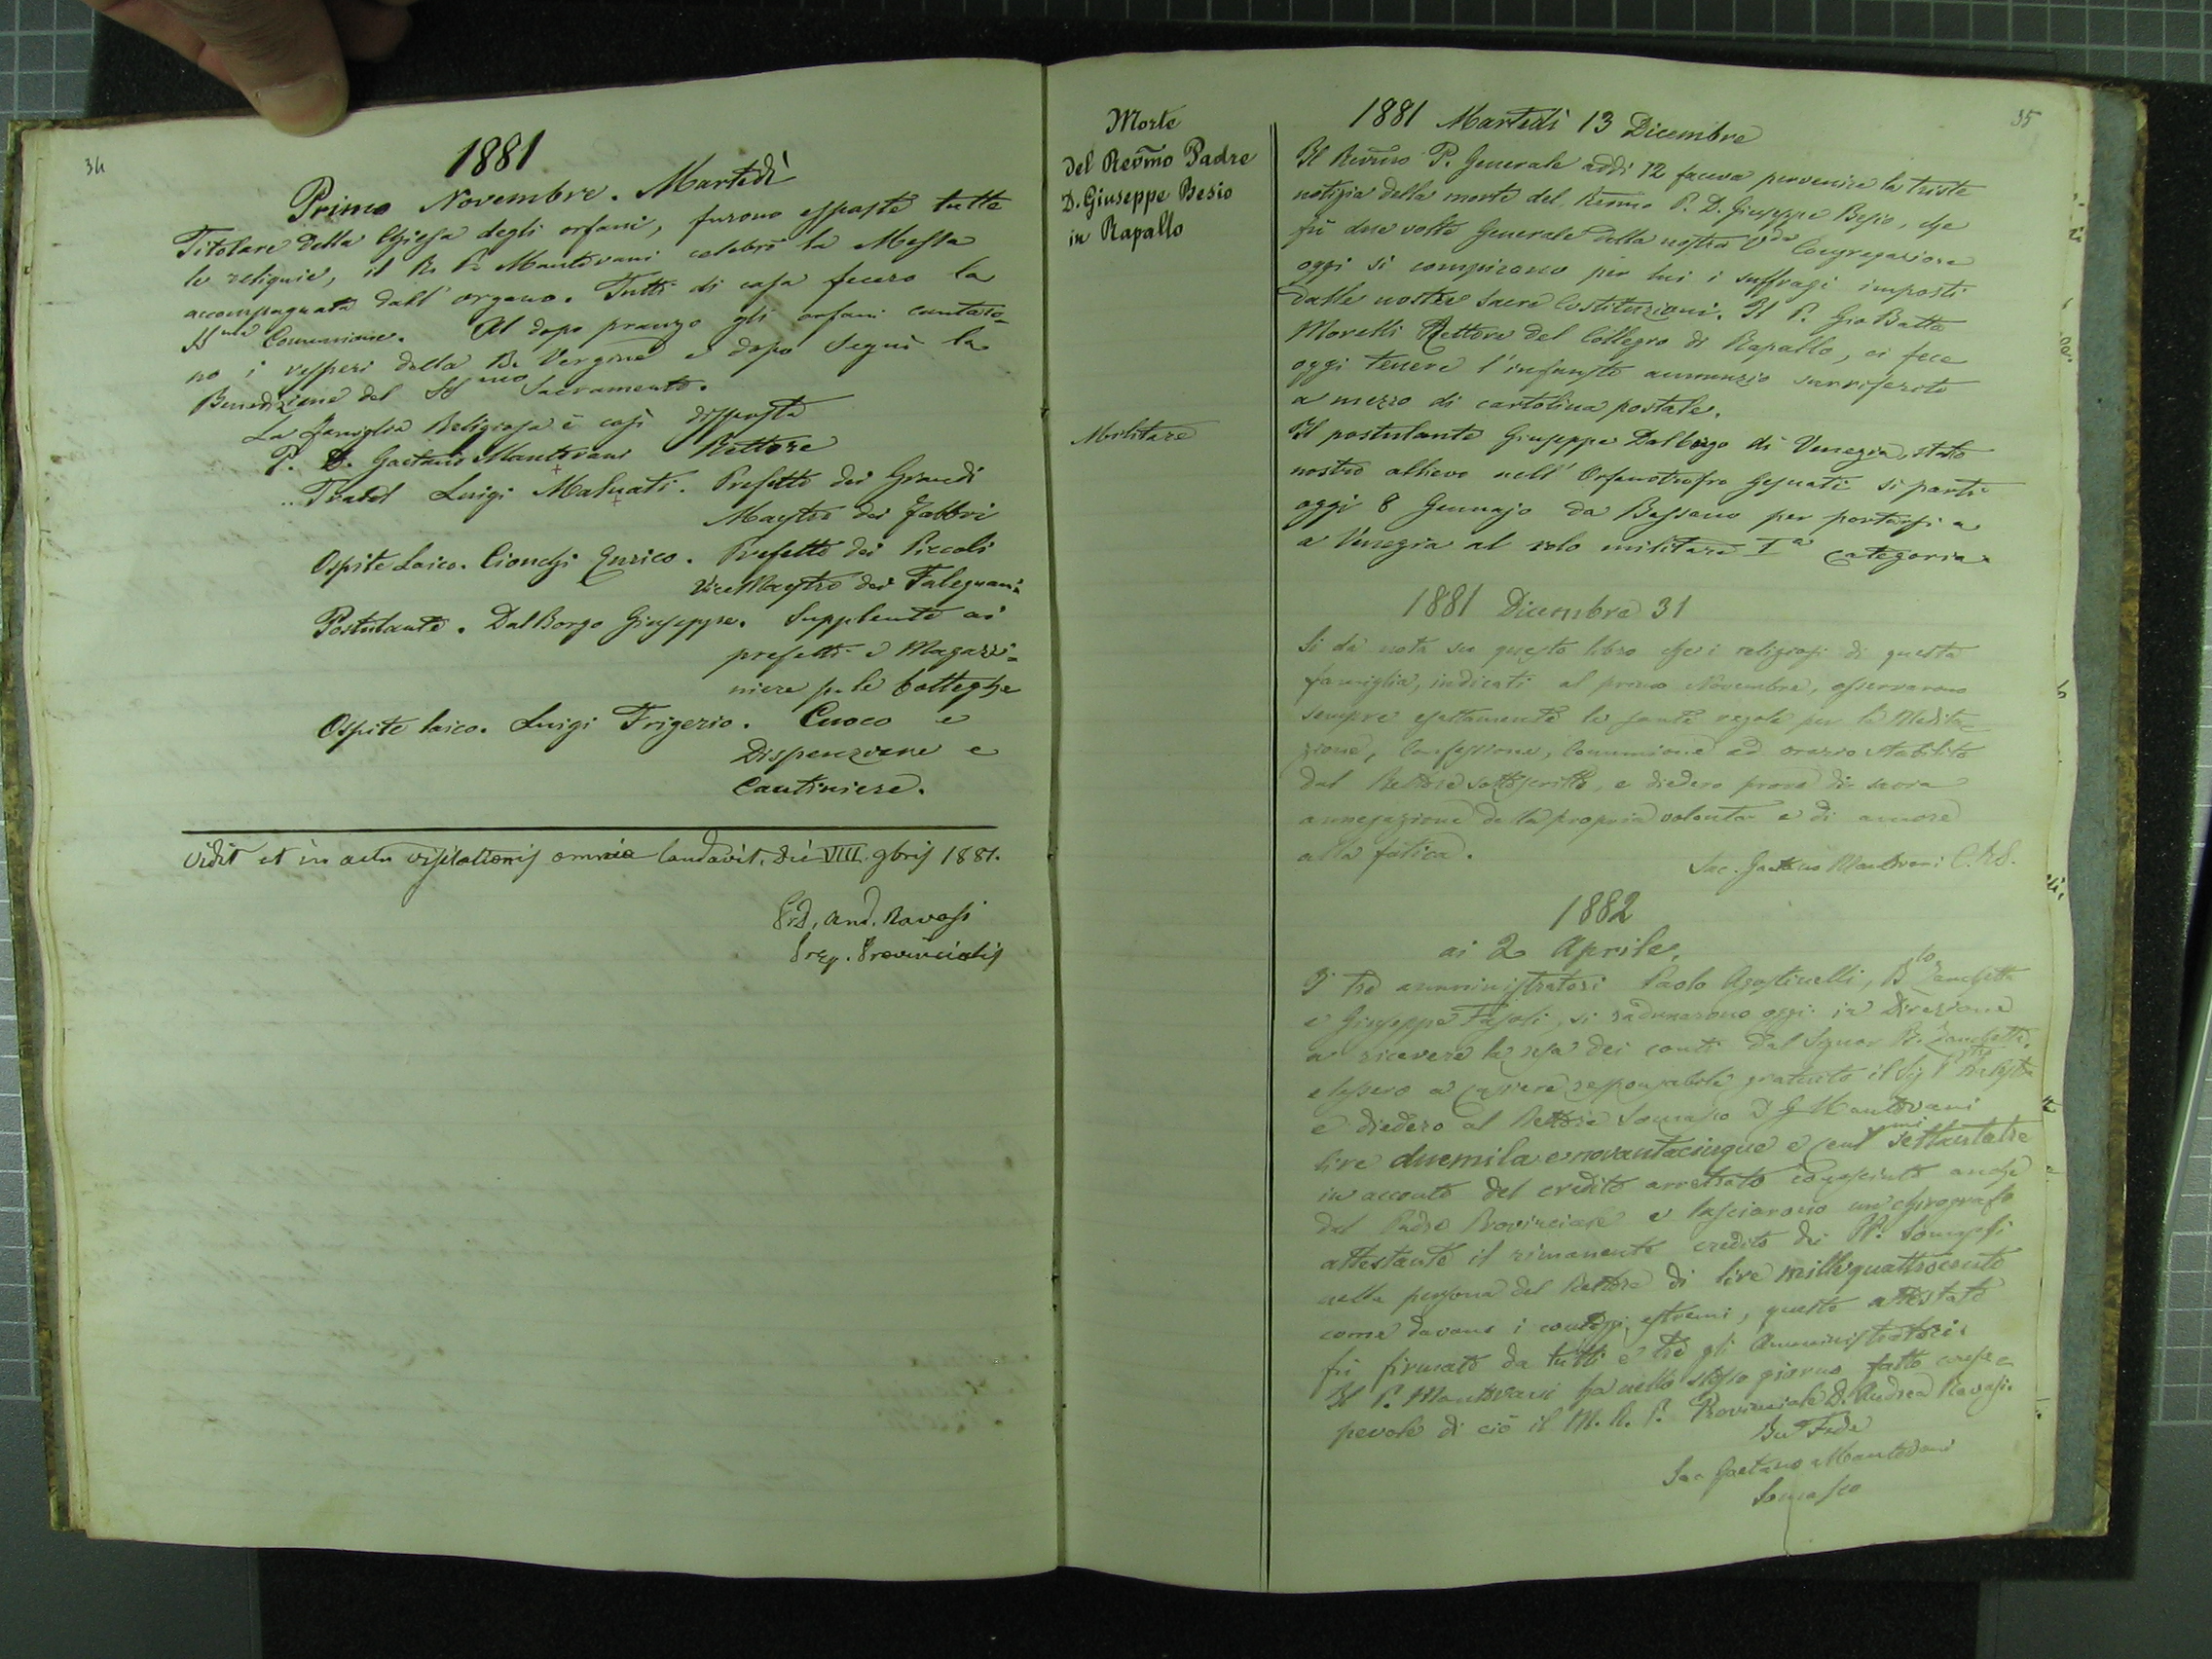 34
1881
Primo Novembre. Martedì
Titolare della Chiesa degli orfani, furono esposte tutte
le reliquie, il R. P. Mantovani celebrò la Messa
accompagnata dall'organo. Tutti di casa fecero la
SS.ma Comunione. Al dopo pranzo gli orfani cantaro=
no i vesperi della B. Vergine e dopo seguì la
Benedizione del SS.mo Sacramento.
La famiglia Religiosa è così disposta
P. D. Gaetano Mantovani Rettore
Fratel Luigi Maluati. Prefetto dei Grandi
Maestro dei fabbri
Ospite Laico. Cionchi Enrico. Prefetto dei Piccoli
Vice Maestro dei Falegnami
Postulante. Dal Borgo Giuseppe. Supplente ai
prefetti e Magazzi=
niere p. le botteghe
Ospite laico. Luigi Frigerio. Cuoco e
Dispenziere e
Cantiniere.
Vidit et in actu visitationis omnia laudavit. Die VIII. 9bris 1881.
And. Ravasi
Prep. Provincialis
35
Morte
del Revmo Padre
D. Giuseppe Besio
in Rapallo
Militare
1881 Martedì 13 Dicembre
Il Revmo P. Generale addì 12 faceva pervenire la triste
notizia della morte del Revmo P. D. Giuseppe Besio, che
fù due volte Generale della nostra Congregazione
oggi si compirono per lui i suffragi imposti
dalle nostre Sacre Costituzioni. Il P. Gio Batta
Morelli Rettore del Collegio di Rapallo, ci fece
oggi tenere l'infausto annunzio surriferito
a mezzo di cartolina postale.
Il postulante Giuseppe Dalborgo di Venezia, stato
nostro allievo nell'Orfanotrofio Gesuati si partì
oggi 8 Gennajo da Bassano per portarsi a
a Venezia al rolo militare Iª Categoria.
1881 Dicembre 31
Si dà nota su questo libro che i religiosi di questa
famiglia, indicati al primo Novembre, osservarono
sempre esattamente le sante regole per la Medita=
zione, Confessione, Comunione ad orario stabilito
dal Rettore sottoscritto, e diedero prova di
annegazione della propria volontà e di amore
alla fatica.
Sac. Gaetano Mantovani C.R.S.
1882
ai 2 Aprile.
I tre amministratori Paolo Agostinelli, B.lo Zanchetta
e Giuseppe Fasoli, si radunarono oggi in Direzione
a ricevere la resa dei conti dal Signor B. Zanchetta,
elessero a cassiere responsabile gratuito il Sig.
e diedero al Rettore Somasco D. G. Mantovani
lire duemila e novantacinque e cent.mi settantatre
in acconto del credito arretrato conosciuto anche
dal Padre Provinciale e lasciarono un chirografo
attestante il rimanente credito dei PP. Somaschi
nella persona del Rettore di lire millequattrocento
come davano i conteggi estremi, questo attestato
fù firmato da tutti e tre gli Amministratori.
Il P. Mantovani ha nello stesso giorno fatto consa=
pevole di ciò il M. R. P. Provinciale D. Andrea Ravasi.
In Fede
Sac Gaetano Mantovani
Somasco